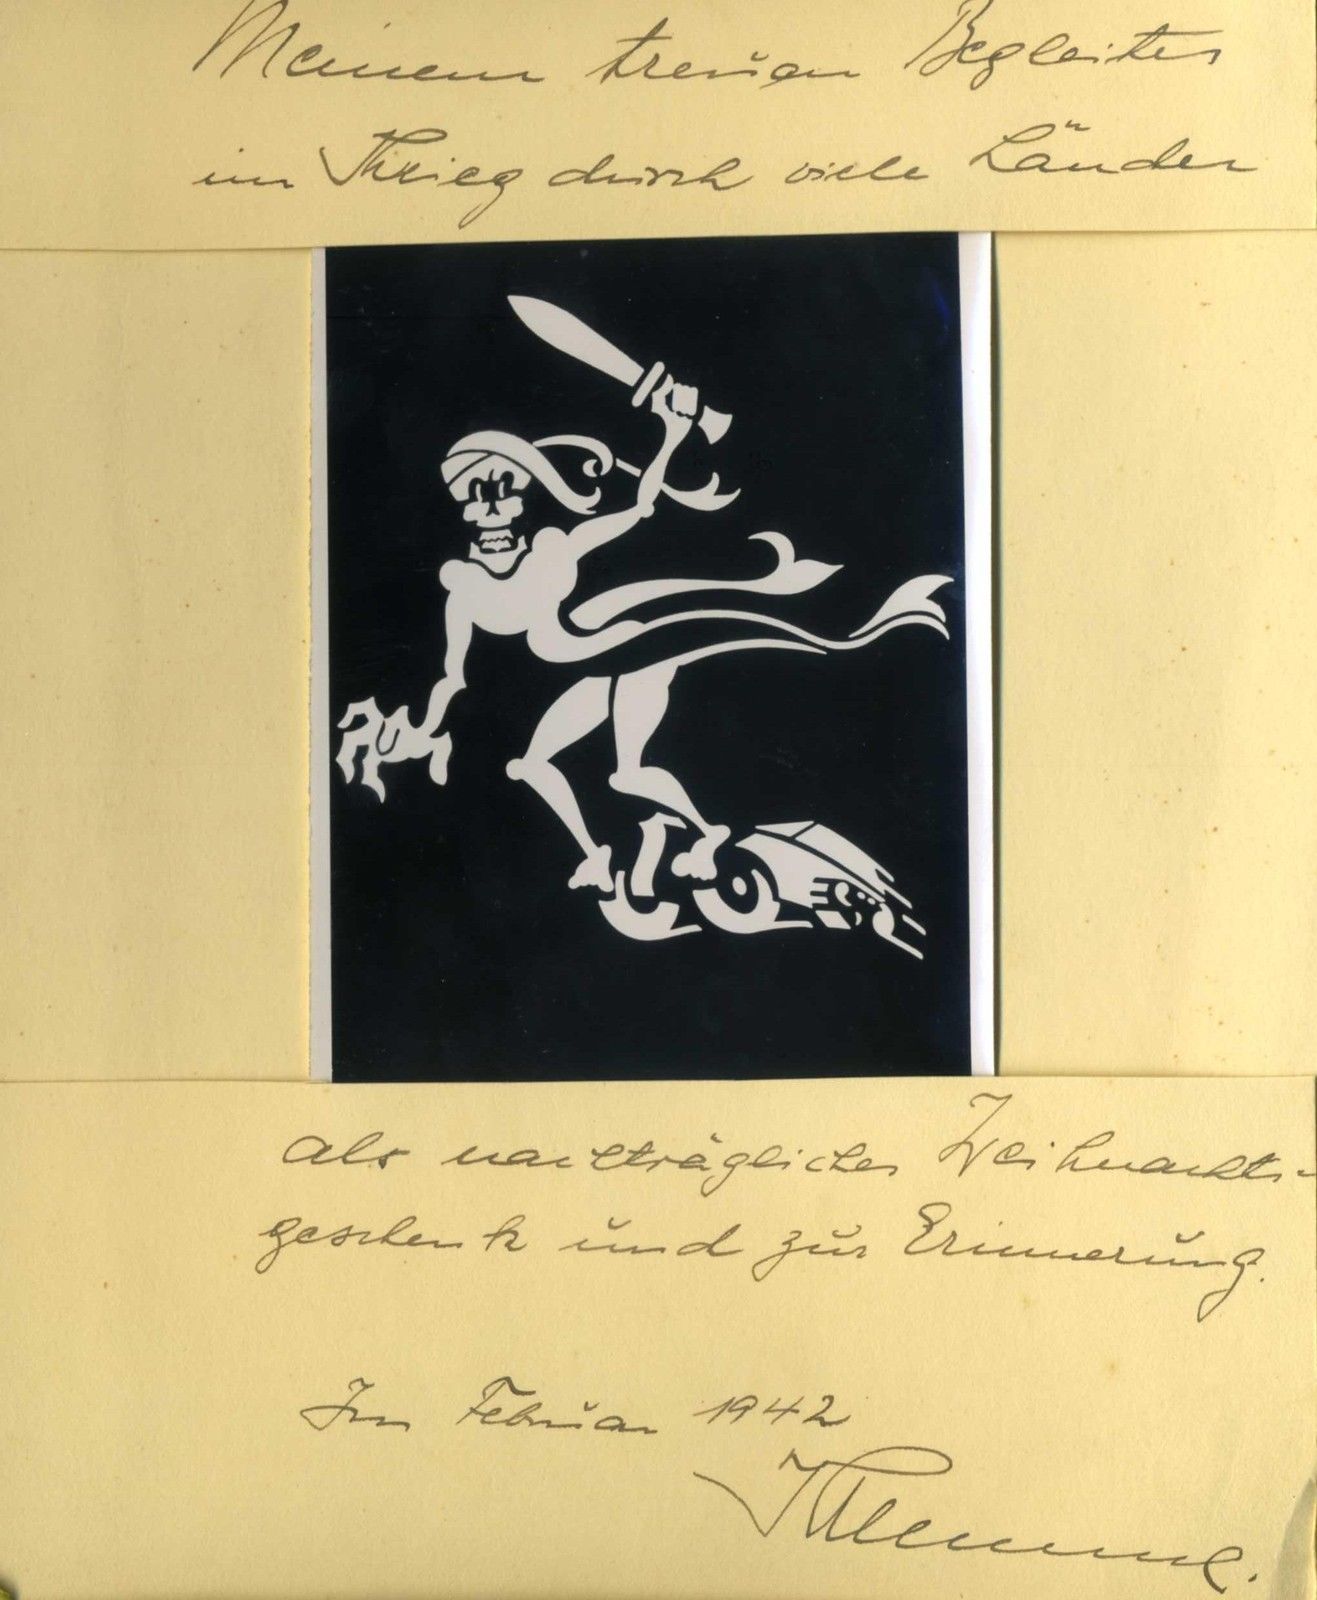 Meinem treuen Begleiter
im Krieg durch viele Länder
als nachträgliches Weihnachts-
geschenk und zur Erinnerung.
Im Februar 1942